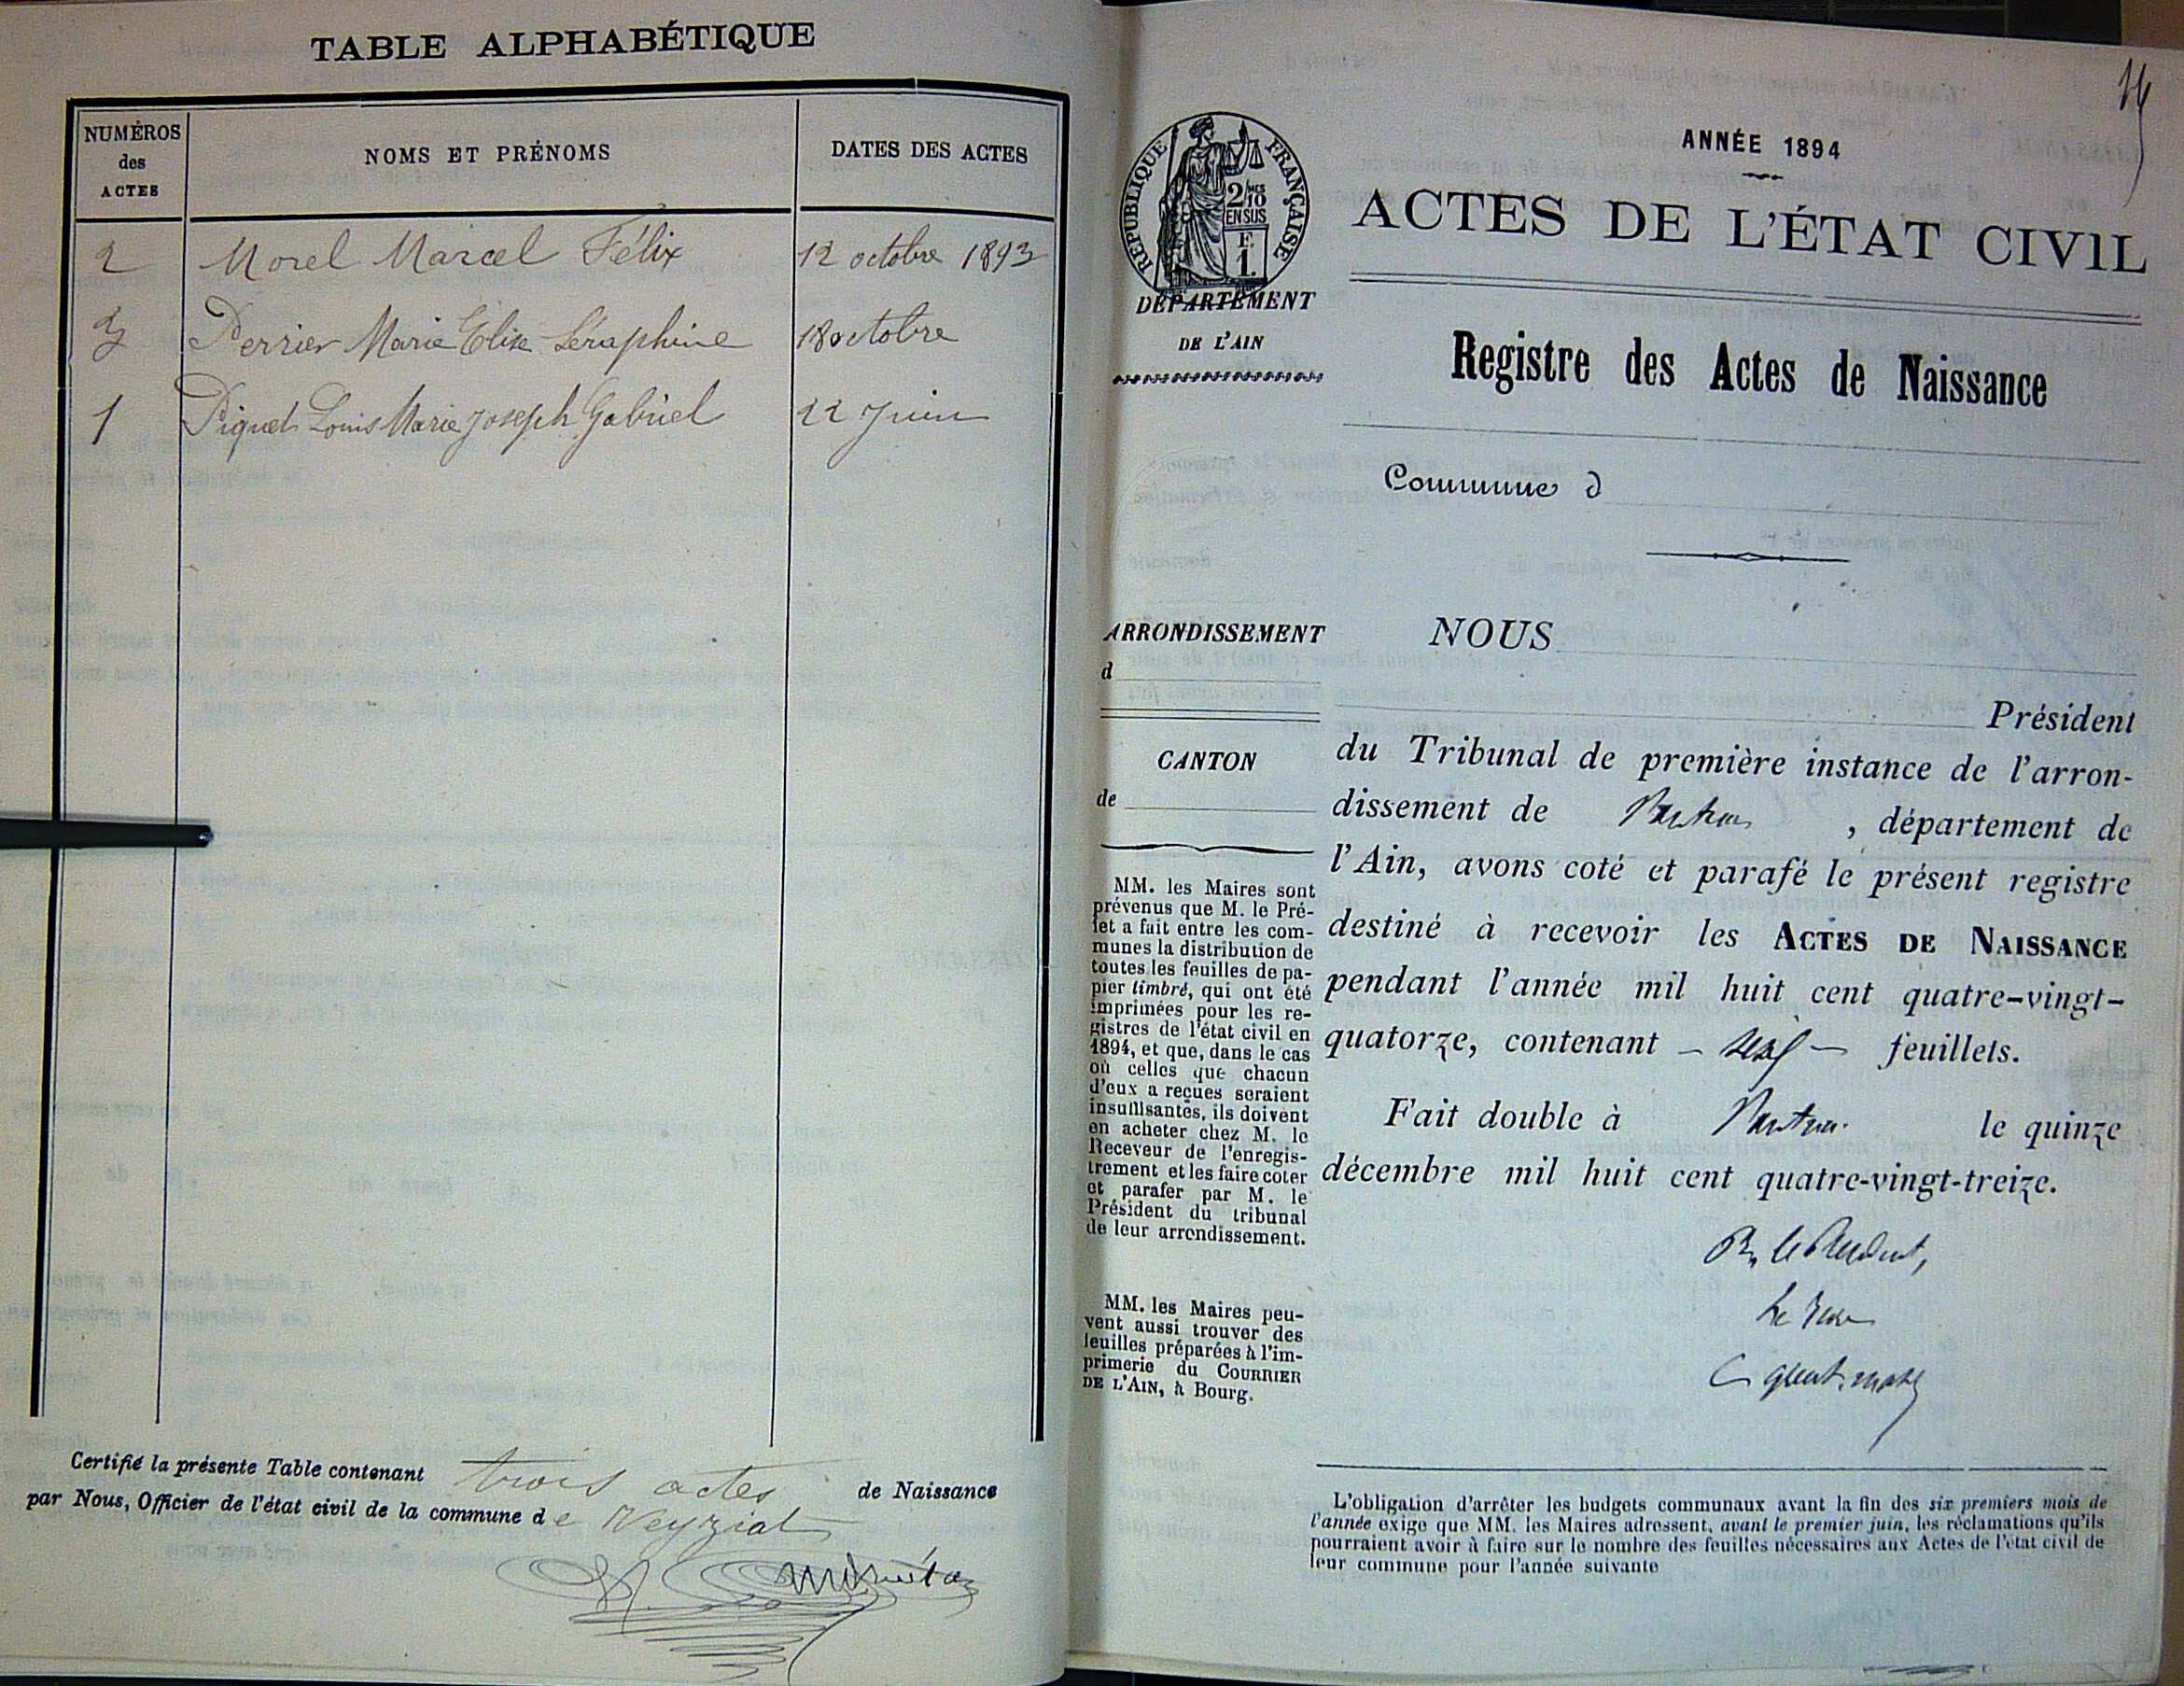 TABLE ALPHABÉTIQUE
NUMÉROS des ACTES
NOMS ET PRÉNOMS
DATES DES ACTES
2 Morel Marcel Félix 12 octobre 1893
3 Perrier Marie Élise Séraphine 18 octobre
1 Piquet Louis Marie Joseph Gabriel 22 Juin
Certifié la présente Table contenant trois actes de Naissance
par Nous, Officier de l'état civil de la commune de Veyziat
ANNÉE 1894
ACTES DE L'ÉTAT CIVIL
RÉPUBLIQUE FRANÇAISE
2/10 MES
EN SUS
F.
1.
DÉPARTEMENT
DE L'AIN
Registre des Actes de Naissance
Commune d
ARRONDISSEMENT
d
CANTON
de
MM. les Maires sont
prévenus que M. le Pré-
fet a fait entre les com-
munes la distribution de
toutes les feuilles de pa-
pier timbré, qui ont été
imprimées pour les re-
gistres de l'état civil en
1894, et que, dans le cas
où celles que chacun
d'eux a reçues seraient
insuffisantes, ils doivent
en acheter chez M. le
Receveur de l'enregis-
trement et les faire coter
et parafer par M. le
Président du tribunal
de leur arrondissement.
MM. les Maires peu-
vent aussi trouver des
feuilles préparées à l'im-
primerie du COURRIER
DE L'AIN, à Bourg.
NOUS
Président
du Tribunal de première instance de l'arron-
dissement de Nantua, département de
l'Ain, avons coté et parafé le présent registre
destiné à recevoir les ACTES DE NAISSANCE
pendant l'année mil huit cent quatre-vingt-
quatorze, contenant feuillets.
Fait double à Nantua le quinze
décembre mil huit cent quatre-vingt-treize.
Pr le Président,
Le Juge
L'obligation d'arrêter les budgets communaux avant la fin des six premiers mois de
l'année exige que MM. les Maires adressent, avant le premier juin, les réclamations qu'ils
pourraient avoir à faire sur le nombre des feuilles nécessaires aux Actes de l'état civil de
leur commune pour l'année suivante